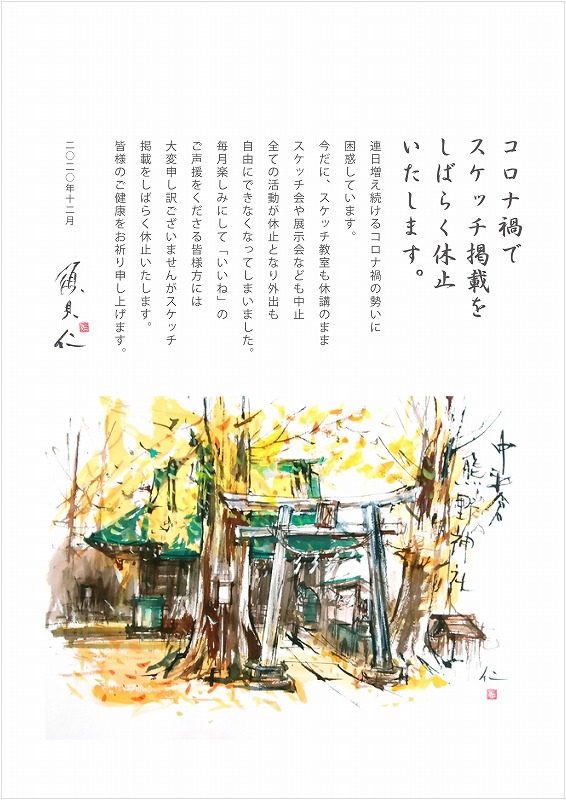 コロナ禍で
スケッチ掲載を
しばらく休止
いたします。
連日増え続けるコロナ禍の勢いに
困惑しています。
今だに、スケッチ教室も休講のまま
スケッチ会や展示会なども中止
全ての活動が休止となり外出も
自由にできなくなってしまいました。
毎月楽しみにして「いいね」の
ご声援をくださる皆様方には
大変申し訳ございませんがスケッチ
掲載をしばらく休止いたします。
皆様のご健康をお祈り申し上げます。
二〇二〇年十二月
須貝仁
熊野神社
仁